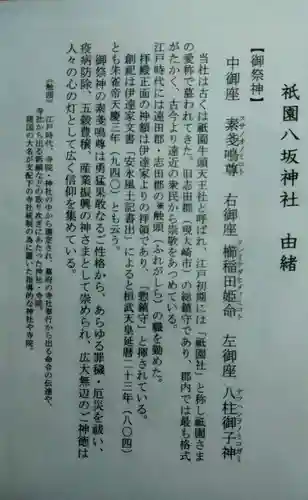 祇園八坂神社　由緒
【御祭神】
スサノオノミコト
中御座　素戔嗚尊　右御座　櫛稲田姫命　左御座　八柱御子神
当社は古くは祇園牛頭天王社と呼ばれ、江戸初期には「祇園社」と称し祇園さま
の愛称で慕われてきた。旧志田郡（現大崎市）の総鎮守であり、郡内では最も格式
がたかく、古今より遠近の衆民から崇敬をあつめている。
江戸時代には遠田郡・志田郡の※触頭（ふれがしら）の職を勤めた。
拝殿正面の神額は伊達家よりの拝領であり、「懲鎮守」と揮されている。
創祀は伊達家文書「安永風土記書出」によると桓武天皇延暦二十三年（八〇四）
とも朱雀帝天慶三年（九四〇）とも云う。
御祭神の素戔嗚尊は勇猛果敢なるご性格から、あらゆる罪穢・厄災を祓い、
疫病防除、五穀豊穣、産業振興の神さまとして崇められ、広大無辺のご神徳は
人々の心の灯として広く信仰を集めている。
《触頭》江戸時代、寺社の中から選定され、幕府の寺社奉行から出る命令の伝達や、
寺社から出る訴願などの取り次ぎにあたった神社・寺院。
諸国の大名が支配下の寺社統制の為に置いた指導的な神社や寺院。